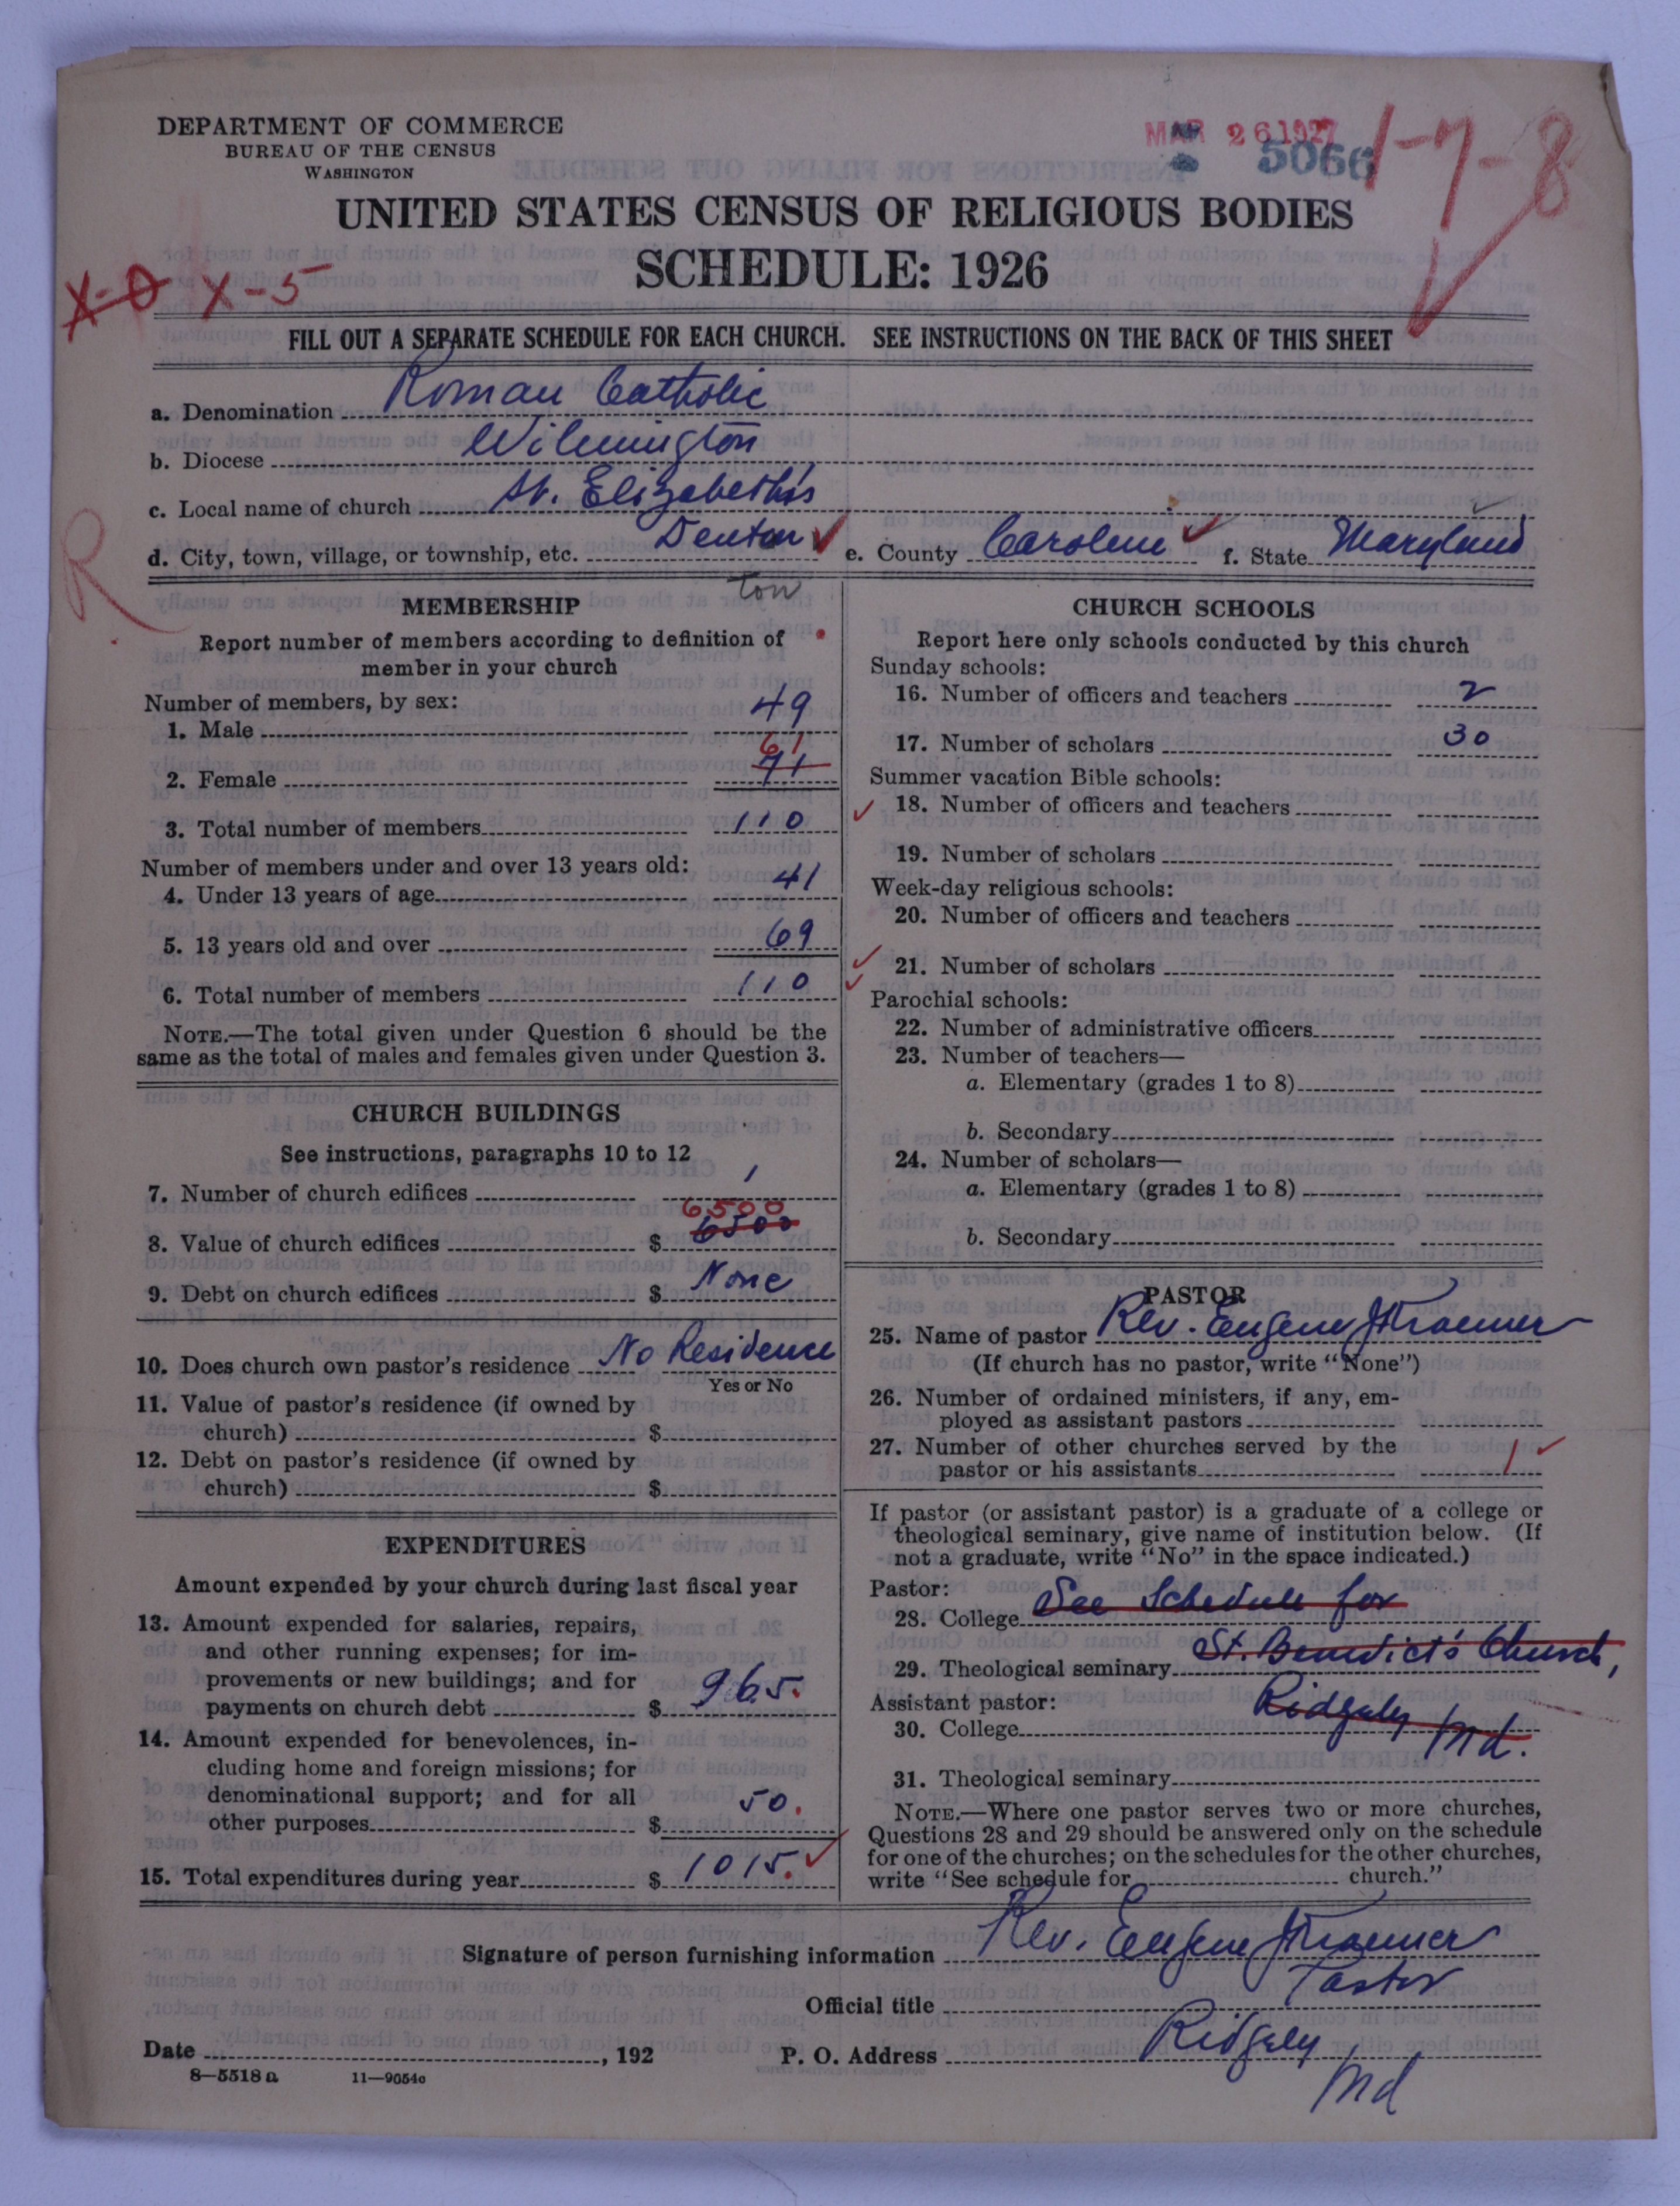 DEPARTMENT OF COMMERCE
BUREAU OF THE CENSUS
WASHINGTON
MAR 26 1927
5066
1-7-8
UNITED STATES CENSUS OF RELIGIOUS BODIES
SCHEDULE: 1926
X-0 X-5
FILL OUT A SEPARATE SCHEDULE FOR EACH CHURCH. SEE INSTRUCTIONS ON THE BACK OF THIS SHEET
a. Denomination Roman Catholic
b. Diocese Wilmington
c. Local name of church St. Elizabeth's
d. City, town, village, or township, etc. Denton e. County Caroline f. State Maryland
R
ton
MEMBERSHIP
Report number of members according to definition of
member in your church
Number of members, by sex:
1. Male 49
61
2. Female 71
3. Total number of members 110
Number of members under and over 13 years old:
4. Under 13 years of age 41
5. 13 years old and over 69
6. Total number of members 110
NOTE.—The total given under Question 6 should be the
same as the total of males and females given under Question 3.
CHURCH BUILDINGS
See instructions, paragraphs 10 to 12
7. Number of church edifices 1
6500
8. Value of church edifices $ 6500
9. Debt on church edifices $ None
10. Does church own pastor's residence No Residence
Yes or No
11. Value of pastor's residence (if owned by
church) $
12. Debt on pastor's residence (if owned by
church) $
EXPENDITURES
Amount expended by your church during last fiscal year
13. Amount expended for salaries, repairs,
and other running expenses; for im-
provements or new buildings; and for
payments on church debt $ 965.
14. Amount expended for benevolences, in-
cluding home and foreign missions; for
denominational support; and for all
other purposes $ 50.
15. Total expenditures during year $ 1015.
CHURCH SCHOOLS
Report here only schools conducted by this church
Sunday schools:
16. Number of officers and teachers 2
17. Number of scholars 30
Summer vacation Bible schools:
18. Number of officers and teachers
19. Number of scholars
Week-day religious schools:
20. Number of officers and teachers
21. Number of scholars
Parochial schools:
22. Number of administrative officers
23. Number of teachers—
a. Elementary (grades 1 to 8)
b. Secondary
24. Number of scholars—
a. Elementary (grades 1 to 8)
b. Secondary
PASTOR
25. Name of pastor Rev. Eugene J Kraemer
(If church has no pastor, write "None")
26. Number of ordained ministers, if any, em-
ployed as assistant pastors
27. Number of other churches served by the
pastor or his assistants 1
If pastor (or assistant pastor) is a graduate of a college or
theological seminary, give name of institution below. (If
not a graduate, write "No" in the space indicated.)
Pastor:
28. College See Schedule for
29. Theological seminary St. Benedict's Church,
Assistant pastor:
30. College Ridgely Md.
31. Theological seminary
NOTE.—Where one pastor serves two or more churches,
Questions 28 and 29 should be answered only on the schedule
for one of the churches; on the schedules for the other churches,
write "See schedule for church."
Signature of person furnishing information Rev. Eugene J Kraemer
Official title Pastor
Date , 192 P. O. Address Ridgely
Md
8—5518 a 11—9054c